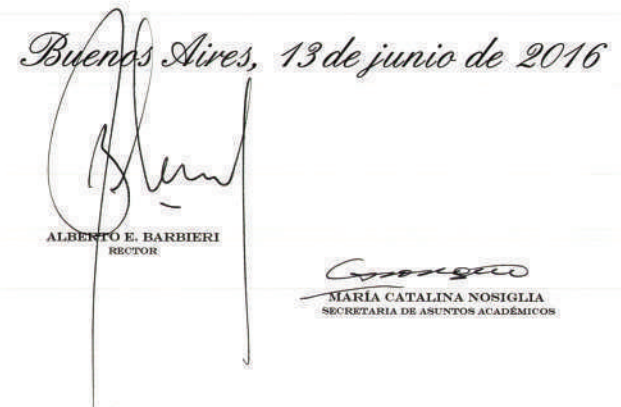 Buenos Aires, 13 de junio de 2016
ALBERTO E. BARBIERI
RECTOR
MARÍA CATALINA NOSIGLIA
SECRETARIA DE ASUNTOS ACADÉMICOS